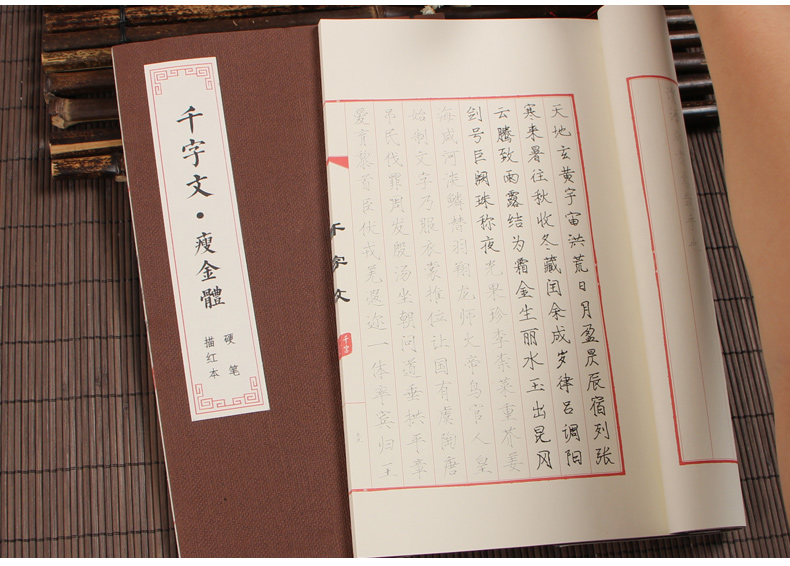 千字文·瘦金體
硬笔
描红本
天地玄黄宇宙洪荒日月盈昃辰宿列张
寒来暑往秋收冬藏闰余成岁律吕调阳
云腾致雨露结为霜金生丽水玉出昆冈
剑号巨阙珠称夜光果珍李柰菜重芥姜
海咸河淡鳞潜羽翔龙师火帝鸟官人皇
始制文字乃服衣裳推位让国有虞陶唐
吊民伐罪周发殷汤坐朝问道垂拱平章
爱育黎首臣伏戎羌遐迩一体率宾归王
千字文
千字